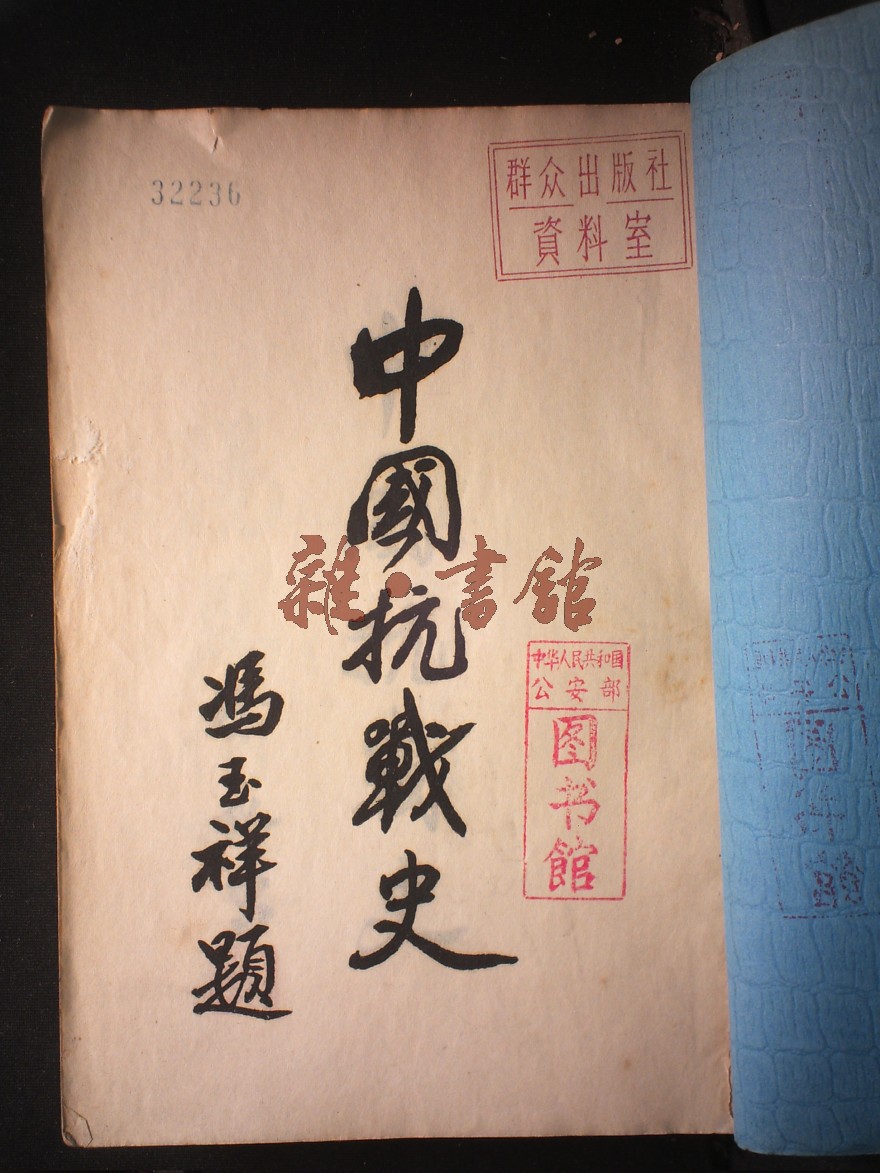 32236
群众出版社
資料室
中國抗戰史
雜·書館
馮玉祥題
中华人民共和国
公安部
图书馆